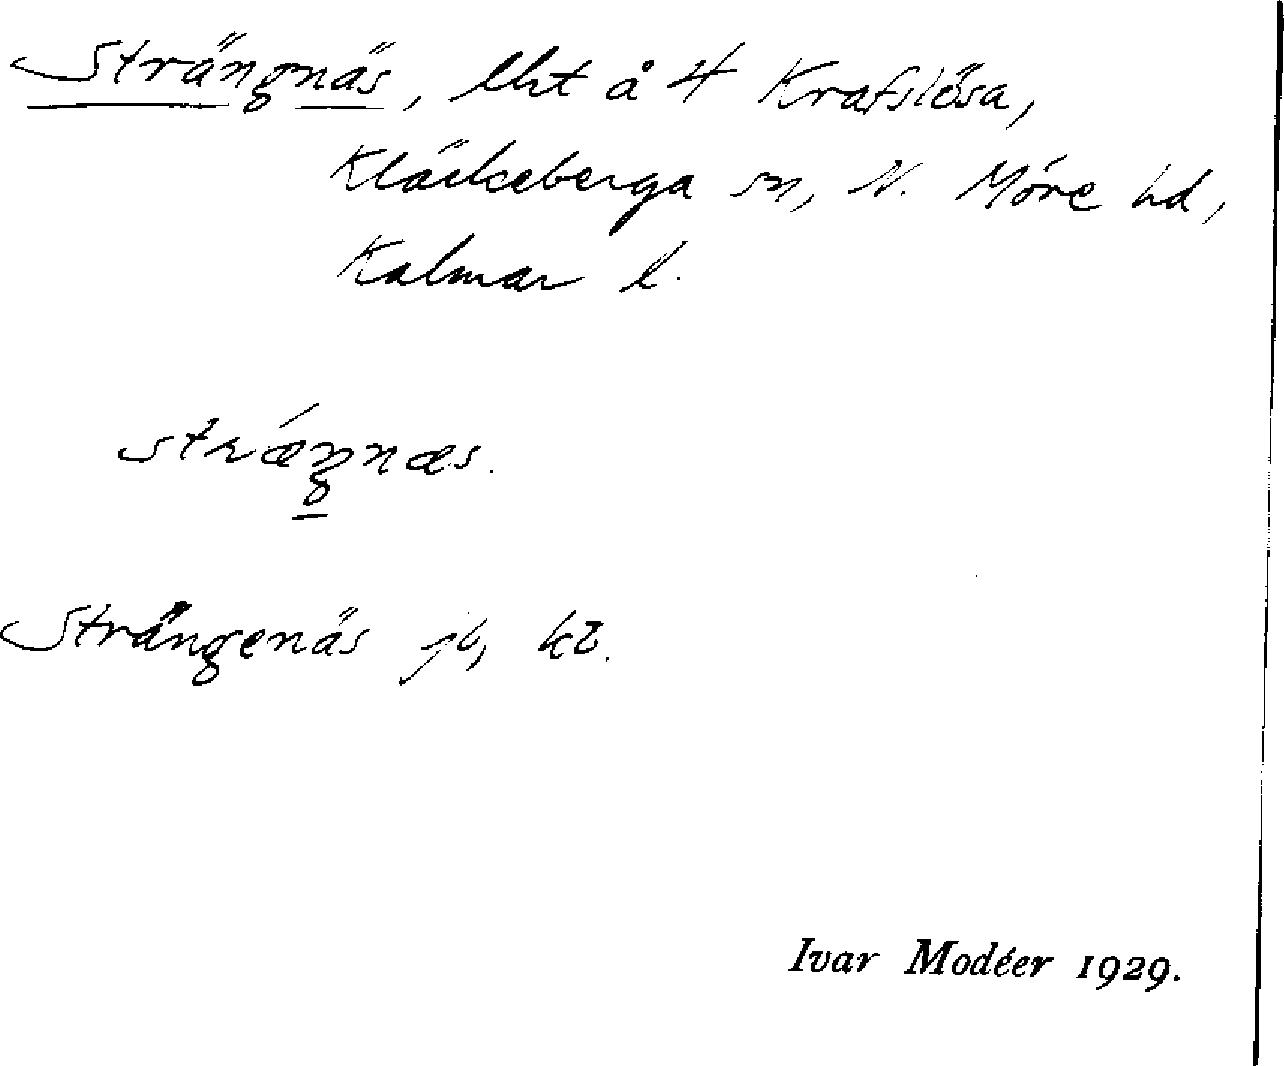 Strängnäs, lht å 4 Krafslösa,
Kläckeberga sn, N. Möre hd,
Kalmar l.
strǽŋnæs.
Strängenäs jb, kb.
Ivar Modéer 1929.